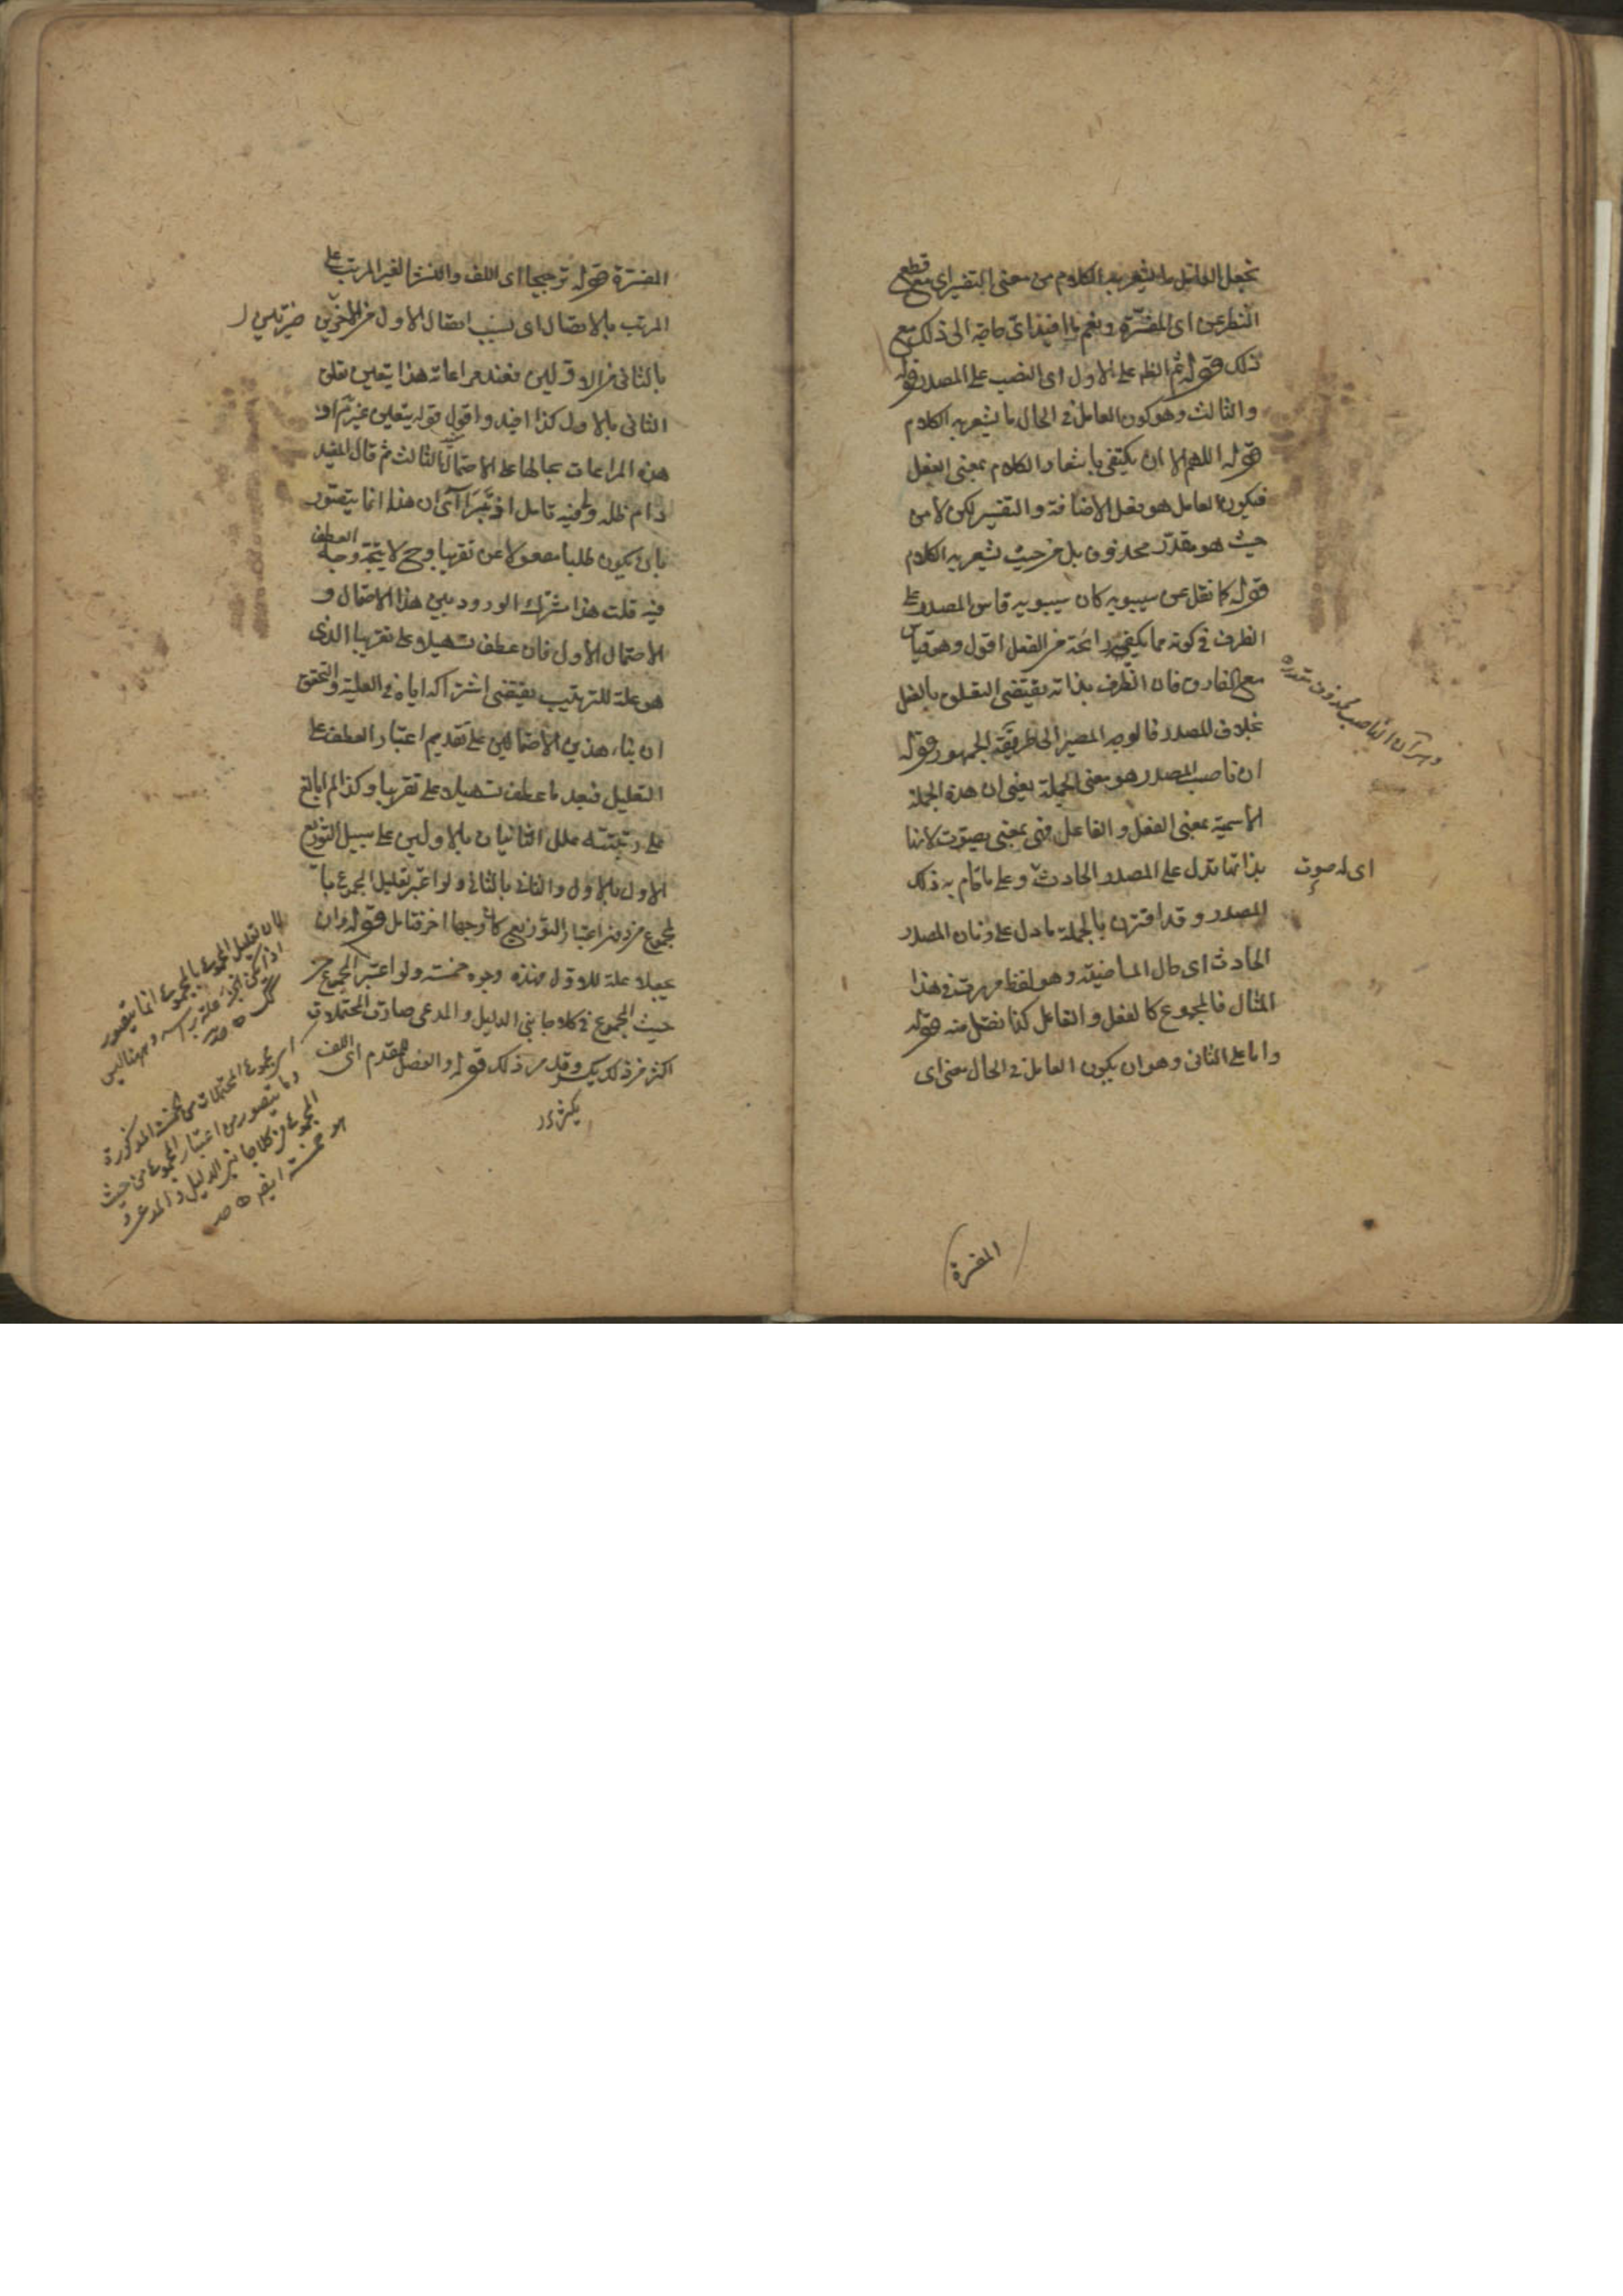 يجعل العامل ما يشعر به الكلام من معنى التفسير اى مع قطع
النظر عن اى المفسرة ونعم ما افيد اى حاجة الى ذلك مع
ذلك قوله ثم الظ على الاول اى النصب على المصدر قوله
والثالث وهو كون العامل فى الحال ما يشعر به الكلام
قوله اللهم الا ان يكتفى باشعار الكلام بمعنى الفعل
فيكون العامل هو فعل الاضافة والتفسير لكن لا من
حيث هو مقدر محذوف بل من حيث يشعر به الكلام
قوله كما نقل عن سيبويه كان سيبويه قاس المصدر على
الظرف فى كونه مما يكفيه رائحة من الفعل اقول وهو قياس
مع الفارق فان الظرف بذاته يقتضى التعلق بالفعل
بخلاف المصدر فالوجه المصير الى طريقة الجمهور قوله
ان ناصب المصدر هو معنى الجملة يعنى ان هذه الجملة
الاسمية بمعنى الفعل والفاعل فهى بمعنى يصوت لانها
بذاتها تدل على المصدر الحادث وعلى ما قام به ذلك
المصدر وقد اقترن بالجملة ما دل على زمان المصدر
الحادث اى حال الماضية وهو لفظ مررت فى هذا
المثال فالمجموع كالفعل والفاعل كذا نقل منه قوله
واما على الثانى وهو ان يكون العامل فى الحال معنى اى
الناصب محذوف
اى له صوت
المفسرة
المفسرة قوله ترجيحا اى اللف والنشر الغير المرتب على
المرتب بالاتصال اى بسبب اتصال الاول من الاخرين
بالثانى من الاولين فعند مراعاته هذا يتعين تعلق
الثانى بالاول كذا افيد واقول قوله يتعين غير
هذه المراعات بحالها على الاحتمال الثالث ثم قال المفيد
دام ظله وفيه تامل اذ ان هذا انما يتصور
بان يكون طلبا مفعولا عن تقريبا وح لا يتجه وجه العطف
فيه قلت هذا مشترك الورود بين هذا الاحتمال و
الاحتمال الاول فان عطف تسهيلا على تقريبا الذى
هو علة للترتيب يقتضى اشتراكه اياه فى العلية والتحقق
ان بناء هذين الاحتمالين على تقديم اعتبار العطف على
التعليل فبعد ما عطف تسهيلا على تقريبا وكذا
على علل الثانيان بالاولين على سبيل التوزيع
الاول بالاول والثانى بالثانى ولو اعتبر تعليل المجموع با
لمجموع من دون اعتبار التوزيع كان وجها اخر فتامل قوله وان
يجعلا علة للاول فهذه وجوه خمسة ولو اعتبر المجموع من
حيث المجموع فى كلا جانبى الدليل والمدعى صارت المحتملات
اكثر من ذلك وقلد من ذلك قوله والفصل المقدم اى اللف
لان تعليل المجموع بالمجموع انما يتصور
اى مجموع المحتملات من الخمسة المذكورة
وما يتصور من اعتبار المجموع من حيث
المجموع فى كلا جانبى الدليل والمدعى